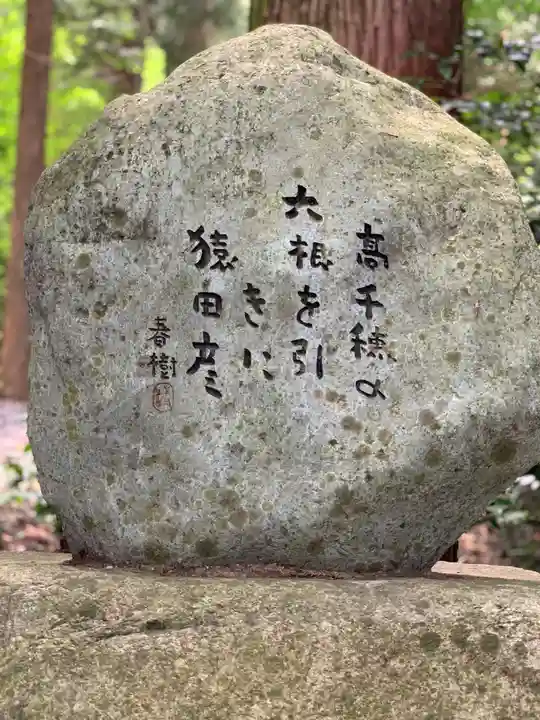 高千穂の
大根を引
きに
猿田彦
春樹